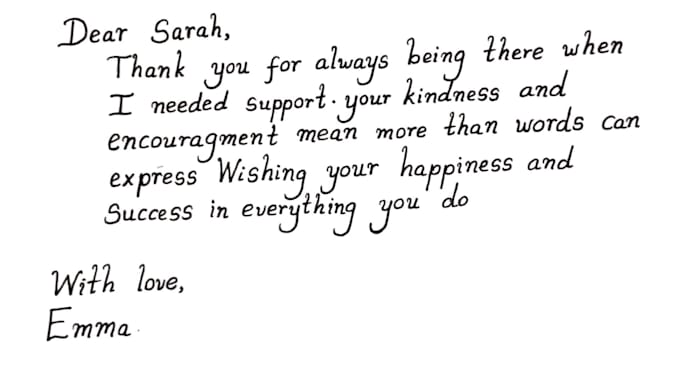 Dear Sarah,
Thank you for always being there when
I needed support. your kindness and
encouragment mean more than words can
express Wishing your happiness and
Success in everything you do
With love,
Emma.